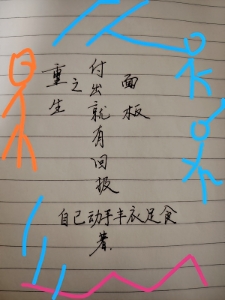 重生
之
付出就有回报
面板
自己动手丰衣足食
著